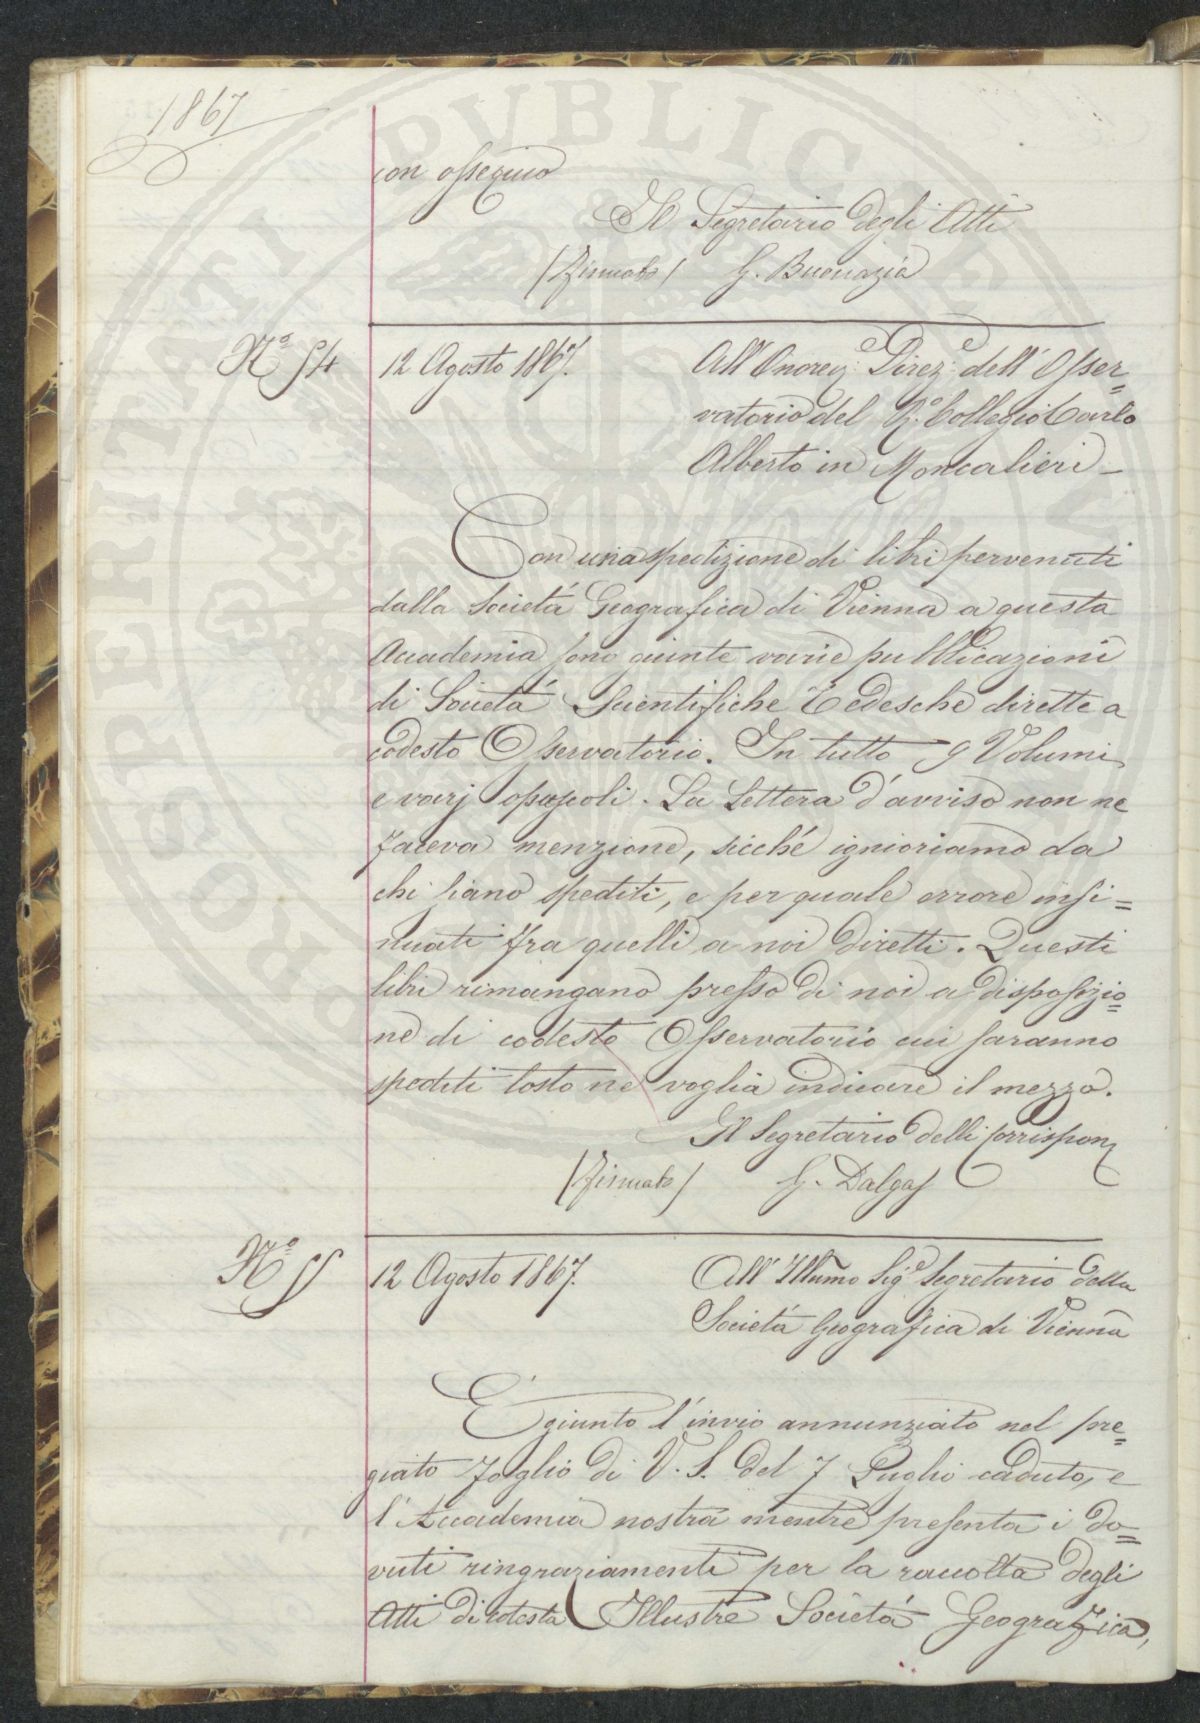 1867
con ossequio
Il Segretario degli Atti
(Firmato) G. Buonazia
N.o 54 12 Agosto 1867. All'Onorev.e Direz.e dell'Osser=
vatorio del R.o Collegio Carlo
Alberto in Moncalieri -
Con una spedizione di libri pervenuti
dalla Società Geografica di Vienna a questa
Accademia sono giunte varie pubblicazioni
di Società Scientifiche Tedesche dirette a
codesto Osservatorio. In tutto 9 Volumi
e varj opuscoli. La Lettera d'avviso non ne
faceva menzione, sicché ignioriamo da
chi siano spediti, e per quale errore insi=
nuati fra quelli a noi diretti. Questi
libri rimangano presso di noi a disposizio=
ne di codesto Osservatorio cui saranno
spediti tosto ne voglia indicare il mezzo.
Il Segretario delli Corrispon
(Firmato) G. Dalgas
N.o 55 12 Agosto 1867. All'Illumo Sig.e Segretario della
Società Geografica di Vienna
È giunto l'invio annunziato nel pre=
giato Foglio di V. S. del 7 Luglio caduto, e
l'Accademia nostra mentre presenta i do=
vuti ringraziamenti per la raccolta degli
Atti di cotesta Illustre Società Geografica,
PROSPERITATI PUBLICAE